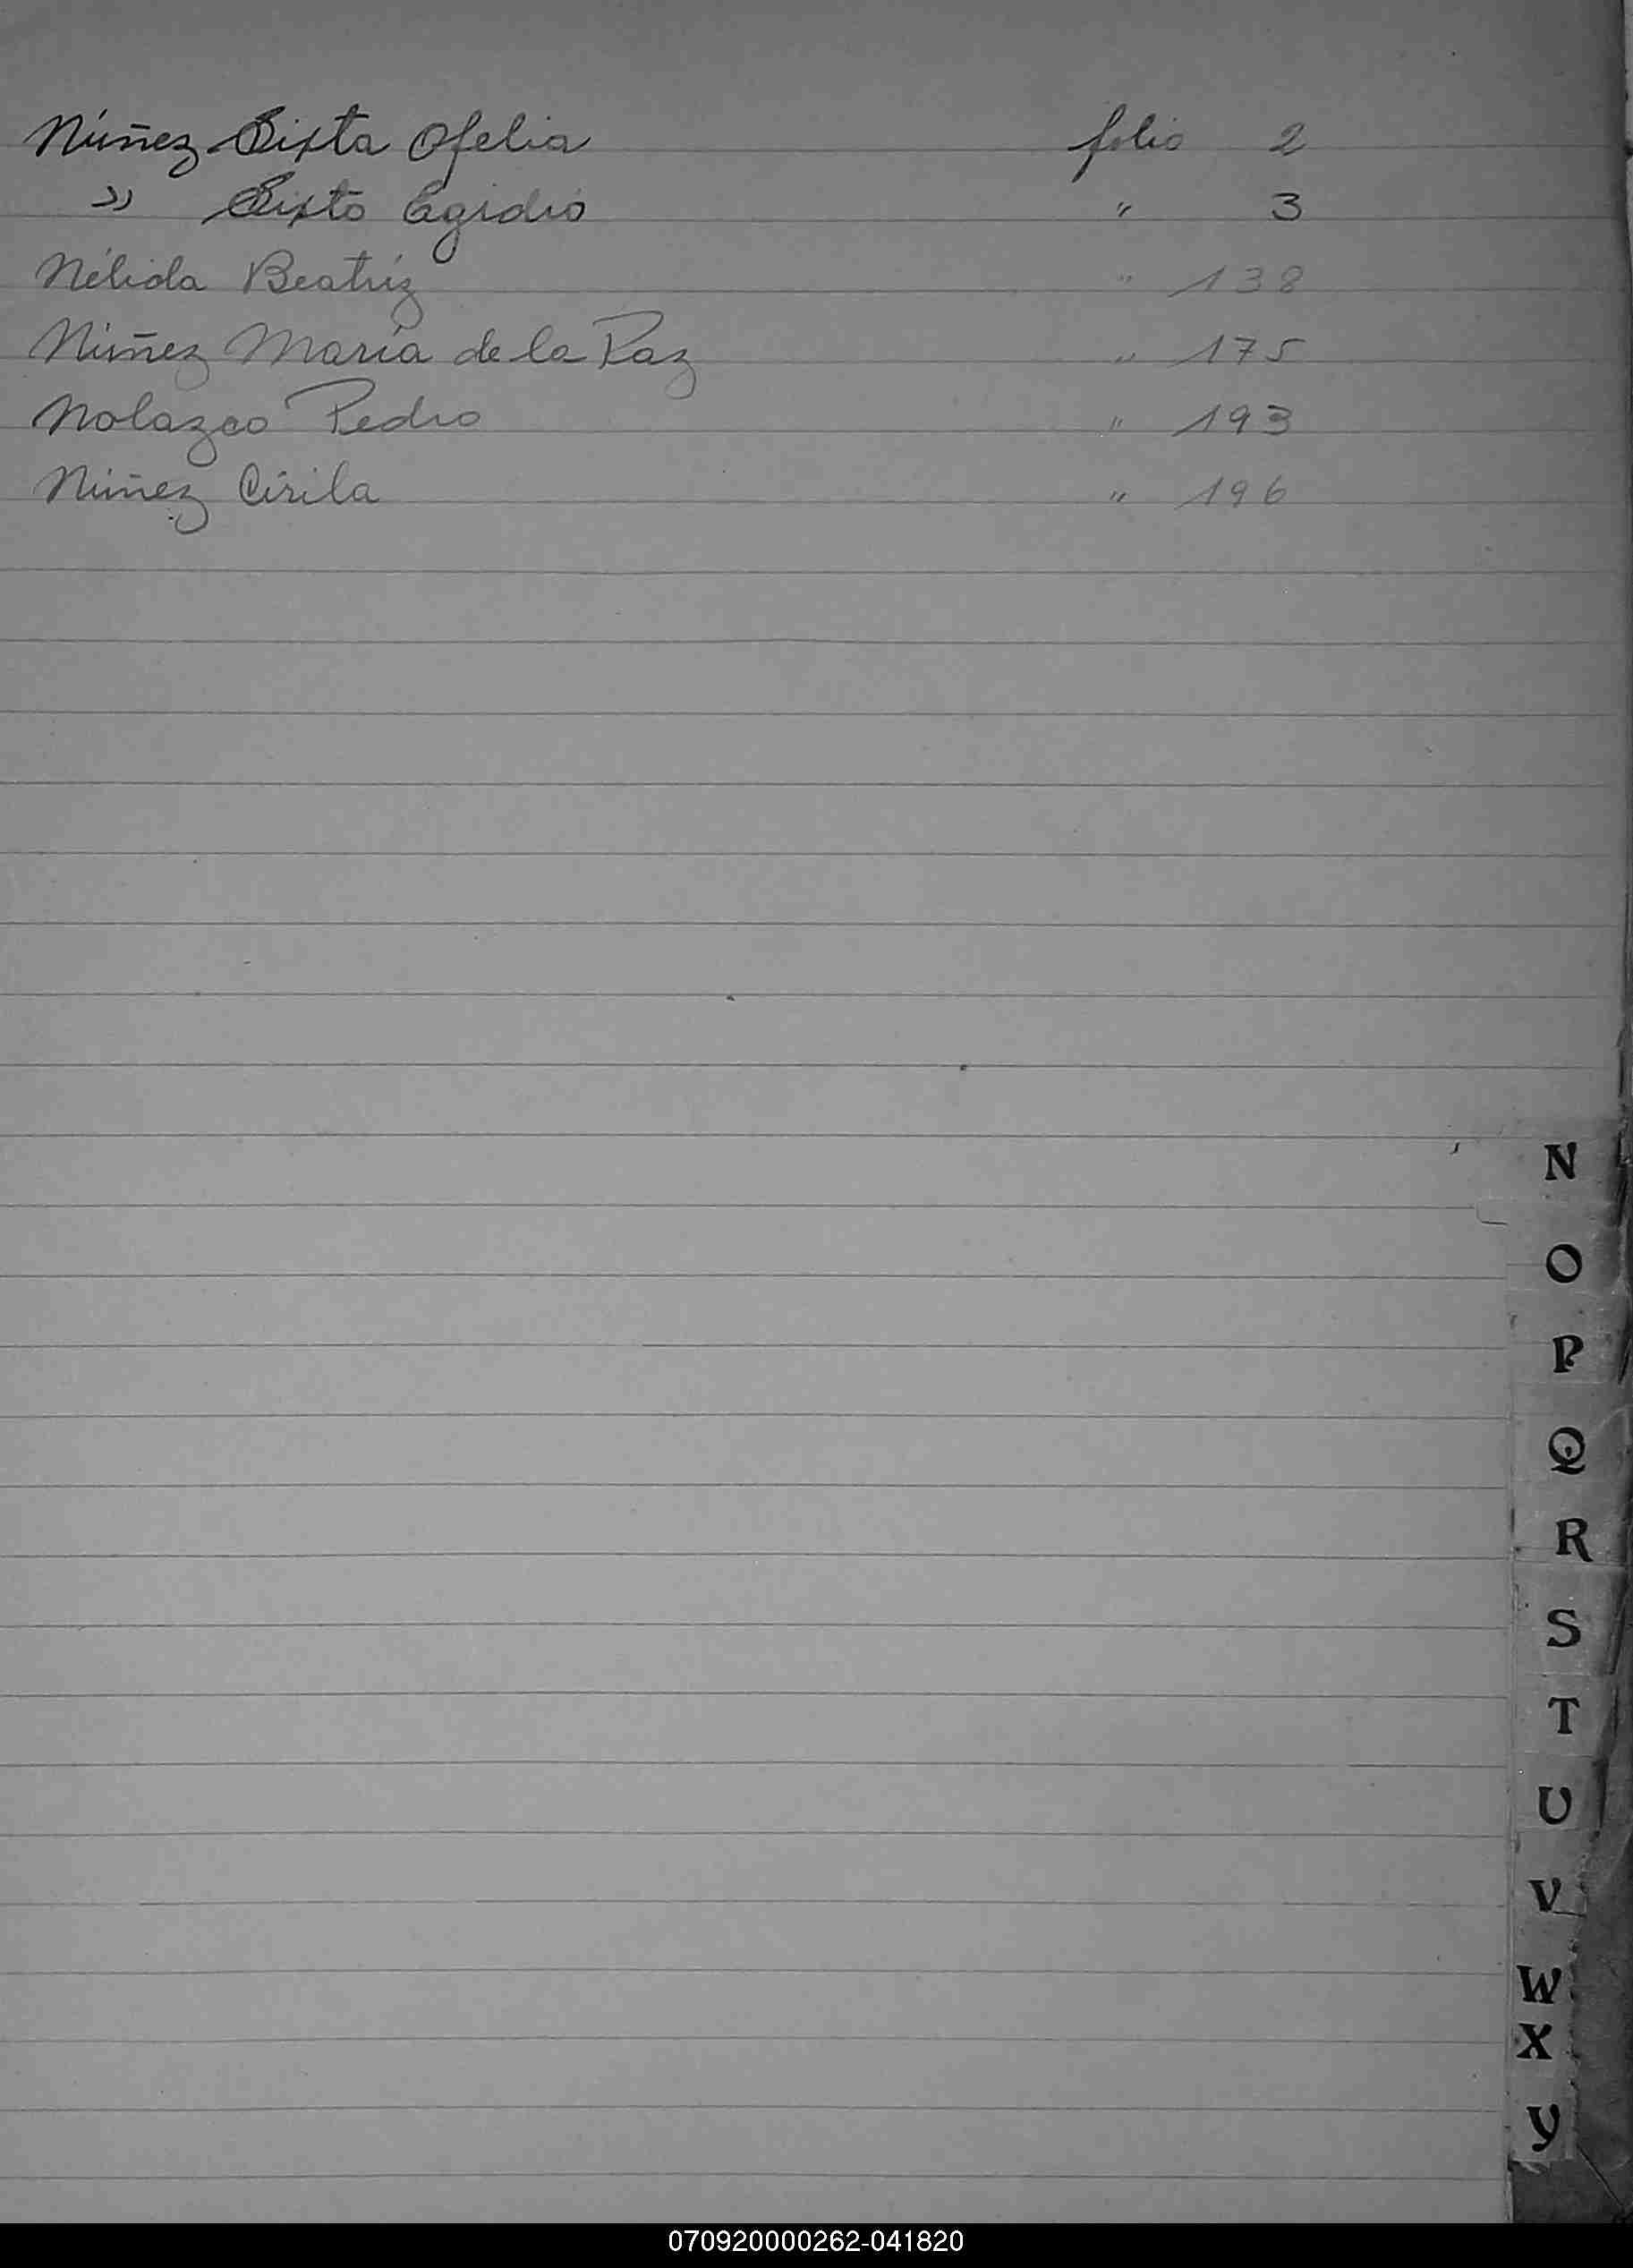 Núñez Sixta Ofelia folio 2
" Sixto Egidio " 3
Nélida Beatríz " 138
Núñez María de la Paz " 175
Nolazco Pedro " 193
Núñez Cirila " 196
N
O
P
Q
R
S
T
U
V
W
X
Y
070920000262-041820